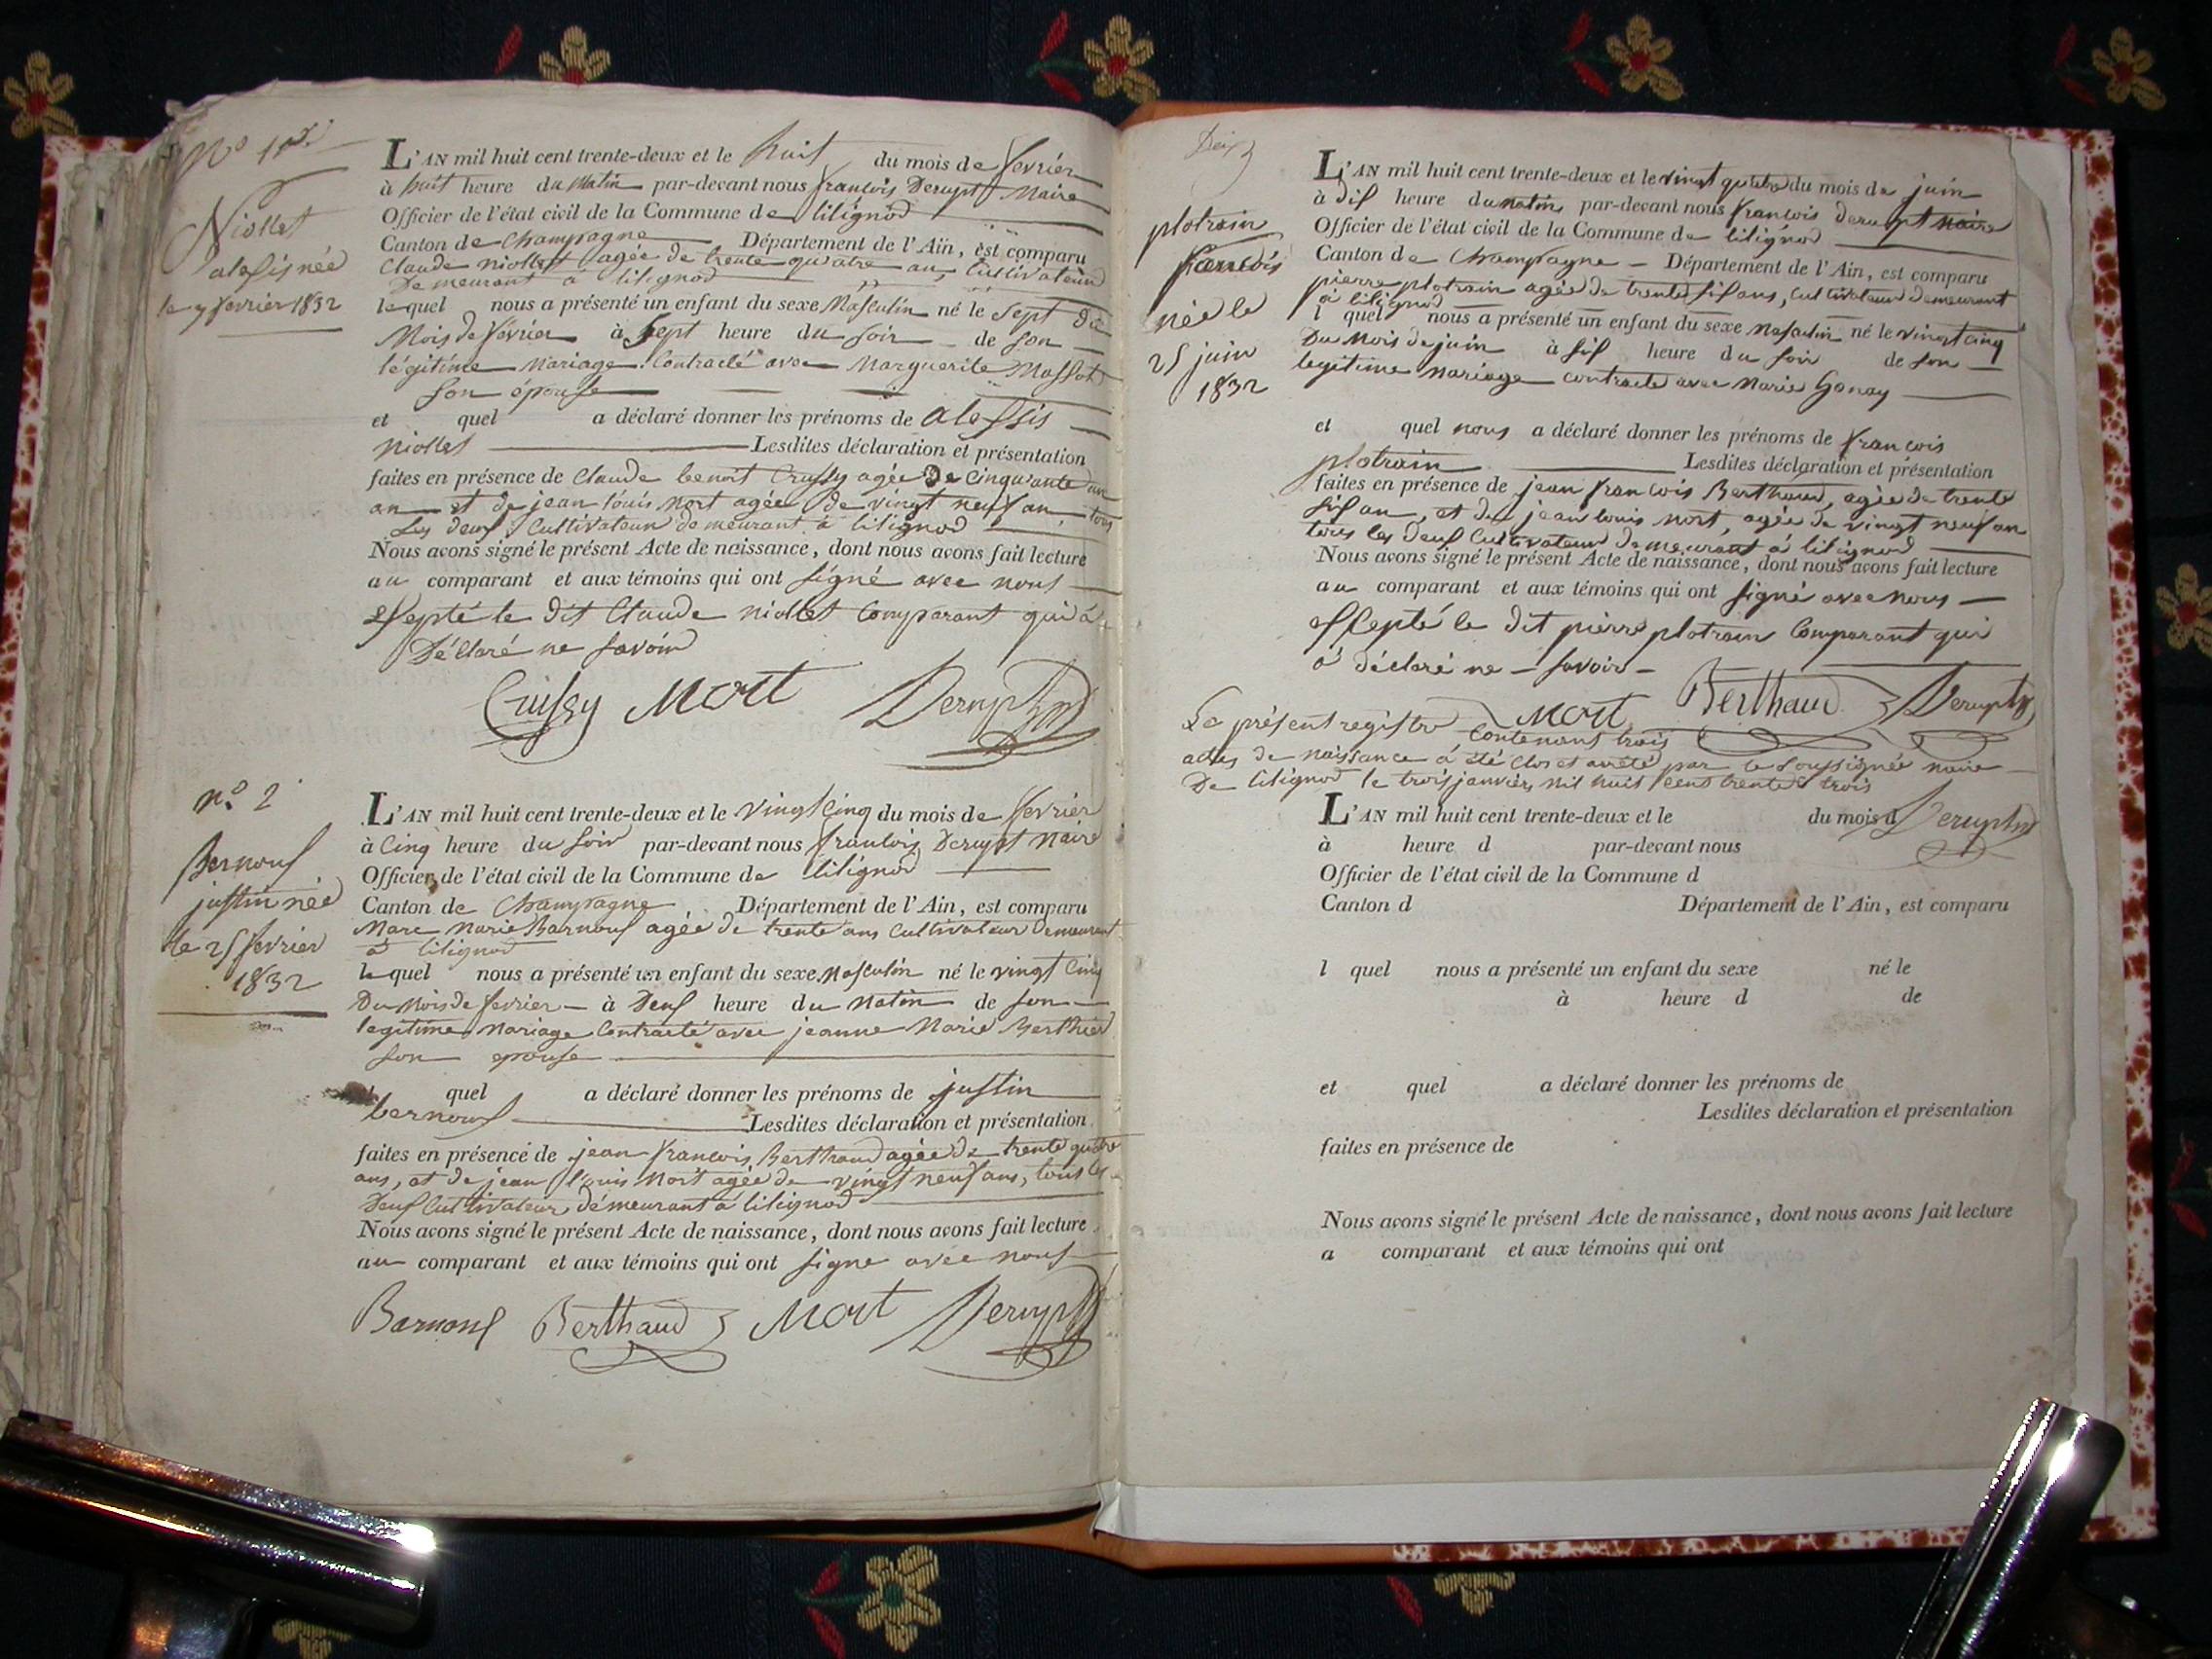 No 1er
Niollet
alexis née
le 7 fevrier 1832
L'AN mil huit cent trente-deux et le huit du mois de fevrier
à huit heure du Matin par-devant nous françois Derupt Maire
Officier de l'état civil de la Commune de lilignod
Canton de Champagne Département de l'Ain, est comparu
Claude niollet agée de trente quatre ans Cultivateur
Demeurant à lilignod
lequel nous a présenté un enfant du sexe Masculin né le sept du
Mois de février à sept heure du soir de son
légitime Mariage Contracté avec Marguerite Massot
son épouse
et quel a déclaré donner les prénoms de alessis
niollet Lesdites déclaration et présentation
faites en présence de Claude benoit Crussy agée De cinquante un
an et de jean louis Mort agée de vingt neuf an tous
Les deux Cultivateur demeurant à lilignod
Nous avons signé le présent Acte de naissance, dont nous avons fait lecture
au comparant et aux témoins qui ont signé avec nous
essepté le dit Claude niollet Comparant qui à
Déclaré ne savoir
Cruissy Mort Derupt
n.o 2
Bernouf
justin née
le 25 fevrier
1832
L'AN mil huit cent trente-deux et le vingt Cinq du mois de fevrier
à Cinq heure du soir par-devant nous françois Derupt Maire
Officier de l'état civil de la Commune de lilignod
Canton de Champagne Département de l'Ain, est comparu
Marc Marie Barnouf agée de trente ans Cultivateur Demeurant
à lilignod
lequel nous a présenté un enfant du sexe Masculin né le vingt Cinq
Du Mois de fevrier à Deux heure du Matin de son
legitime Mariage Contracté avec jeanne Marie Berthier
son epouse
quel a déclaré donner les prénoms de justin
bernouf Lesdites déclaration et présentation
faites en présence de jean françois Berthaud agée de trente quatre
ans, et de jean louis Mort agée de vingt neuf ans, tous les
Deux Cultivateur démeurant à lilignod
Nous avons signé le présent Acte de naissance, dont nous avons fait lecture
au comparant et aux témoins qui ont signe avec nous
Barnouf Berthaud Mort Derupt
plotrain
francois
née le
25 juin
1832
L'AN mil huit cent trente-deux et le vingt quatre du mois de juin
à dix heure du matin par-devant nous francois derupt Maire
Officier de l'état civil de la Commune de lilignod
Canton de Champagne Département de l'Ain, est comparu
pierre plotrain agée de trente six ans, Cultivateur demeurant
à lilignod
l quel nous a présenté un enfant du sexe Masculin né le vingt cinq
Du Mois de juin à six heure du soir de son
legitime Mariage contracté avec Marie Gonay
et quel nous a déclaré donner les prénoms de francois
plotrain Lesdites déclaration et présentation
faites en présence de jean francois Berthaud, agée de trente
six an, et de jean louis Mort, agée de vingt neuf an
tous les deux Cultivateur demeurant à lilignod
Nous avons signé le présent Acte de naissance, dont nous avons fait lecture
au comparant et aux témoins qui ont signé avec nous
essepté le dit pierre plotrain Comparant qui
à déclaré ne savoir
Mort Berthaud Derupt
Le présent registre Contenant trois
actes de naissance à été clos et arrété par le soussignée maire
De lilignod le trois janvier mil huit cent trente trois
Derupt
L'AN mil huit cent trente-deux et le du mois d
à heure d par-devant nous
Officier de l'état civil de la Commune d
Canton d Département de l'Ain, est comparu
l quel nous a présenté un enfant du sexe né le
à heure d de
et quel a déclaré donner les prénoms de
Lesdites déclaration et présentation
faites en présence de
Nous avons signé le présent Acte de naissance, dont nous avons fait lecture
a comparant et aux témoins qui ont